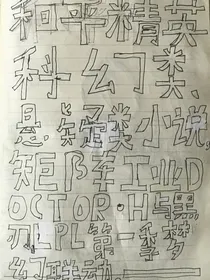 和平精英
科幻类、
悬疑类小说,
矩阵工业D
OCTOR·H与黑
刃LPL第一季梦
幻联动